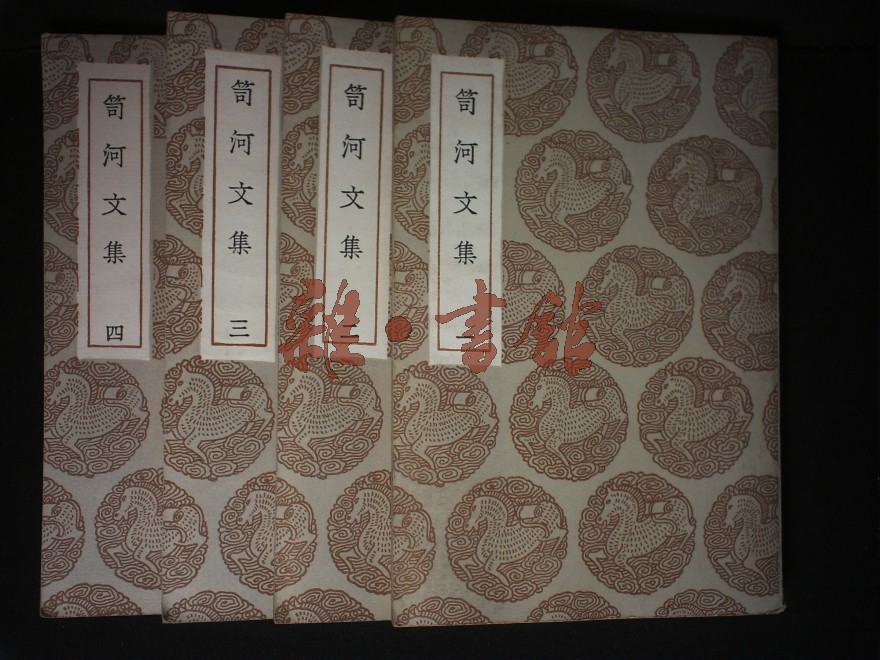 笥河文集 一
笥河文集 二
笥河文集 三
笥河文集 四
雜·書館